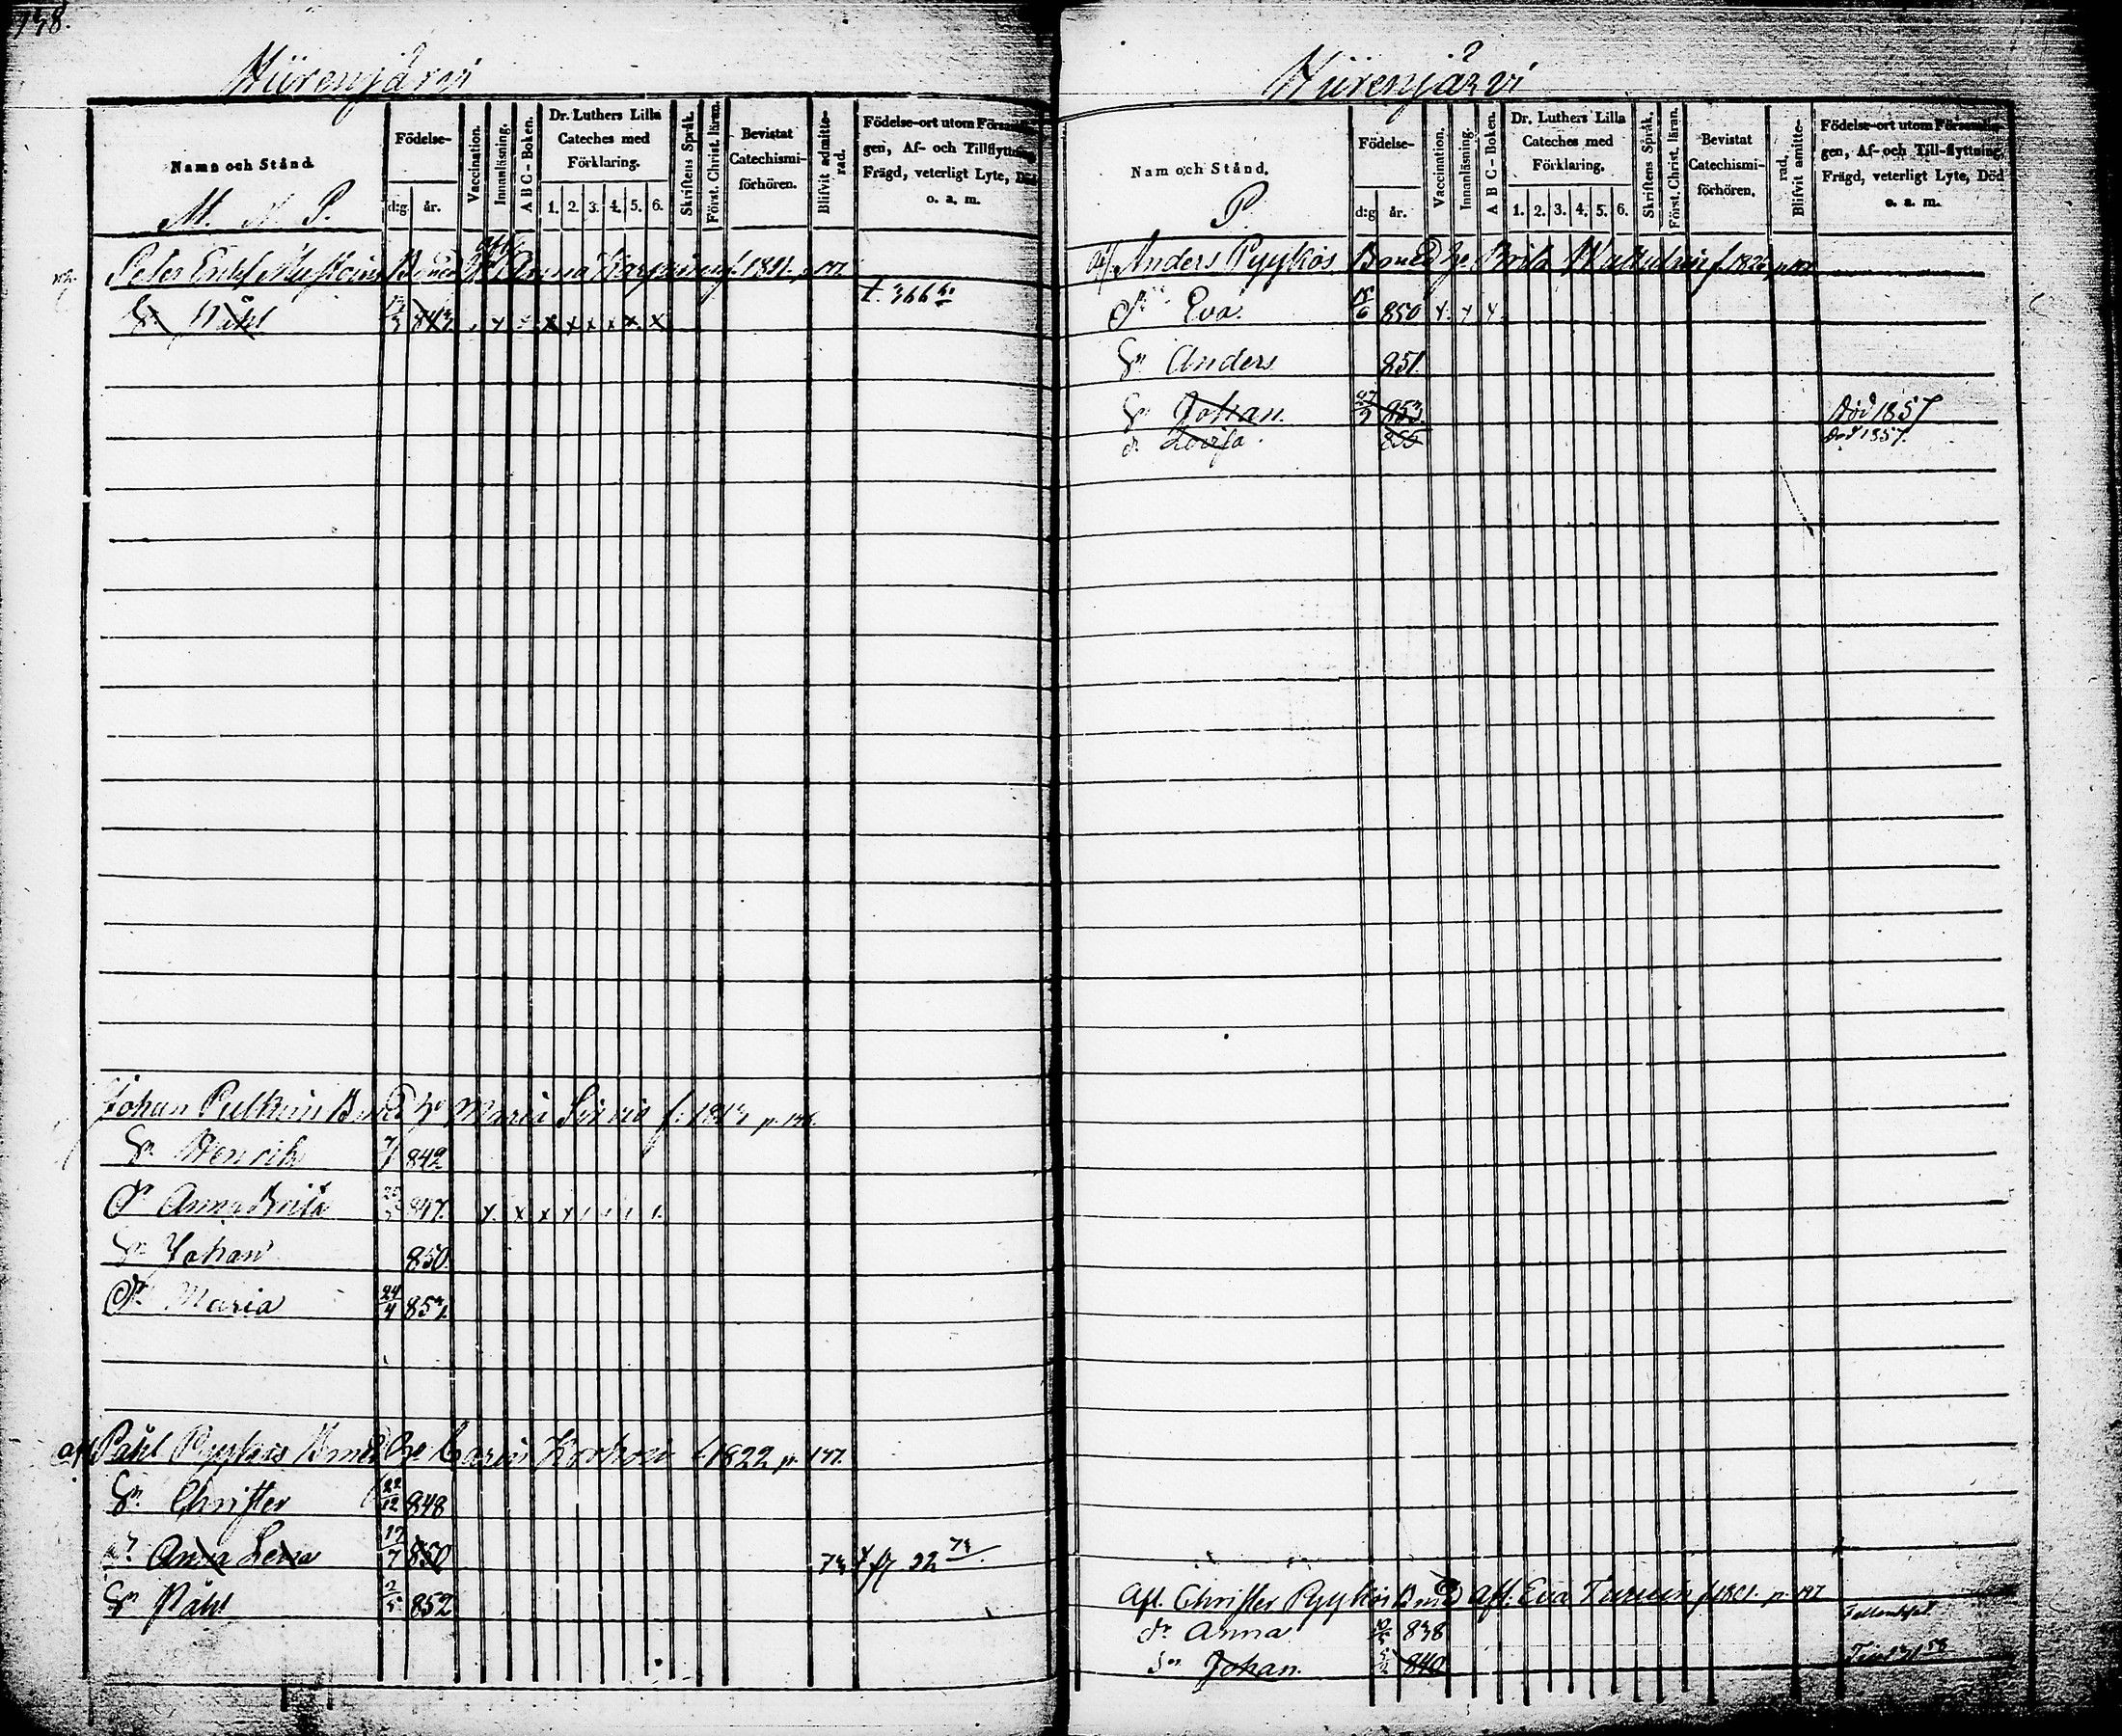 148.
Hiirenjärvi
Namn och Stånd
M. N. P.
Födelse-
d:g. år.
Vaccination.
Innanläsning.
A B C - Boken.
Dr. Luthers Lilla
Cateches med
Förklaring.
1. 2. 3. 4. 5. 6.
Skriftens Språk.
Först. Christ. läran.
Bevistat
Catechismi-
förhören.
Blifvit admitte-
rad.
Födelse-ort utom Försam
gen, Af- och Tillflyttning
Frägd, veterligt Lyte, Död
o. a. m.
Peter Anna
Sn Påhl 843 x x x x x x x
t. 366
Johan Pulkin Maria f. 1813 p. 146.
Sn Henrik 842
Dr Anna Brita 847. x x x x
Sn Johan 850.
Dr Maria 24/4 853.
afl Påhl Pyykös Carin f 1822 p. 147.
Sn Christer 22/12 848
dr Anna Lena 17/7 850 fl. 22
Sn Påhl 2/5 852
Hiirenjärvi
Namn och Stånd.
P.
Födelse-
d:g år.
Vaccination.
Innanläsning.
A B C - Boken.
Dr. Luthers Lilla
Cateches med
Förklaring.
1. 2. 3. 4. 5. 6.
Skriftens Språk.
Först. Christ. läran.
Bevistat
Catechismi-
förhören.
rad.
Blifvit amitte-
Födelse-ort utom Försam
gen, Af- och Till-flyttning,
Frägd, veterligt Lyte, Död
o. a. m.
Anders Pyykös Brita
Dr Eva 850 x x x
Sn Anders 851.
Sn Johan 27/9 853. Död 1857
dr Lovisa. 856 Död 1857.
Afl. Christer Pyykös afl. Eva f 1801. p. 147
dr Anna 838
Sn Johan. 840